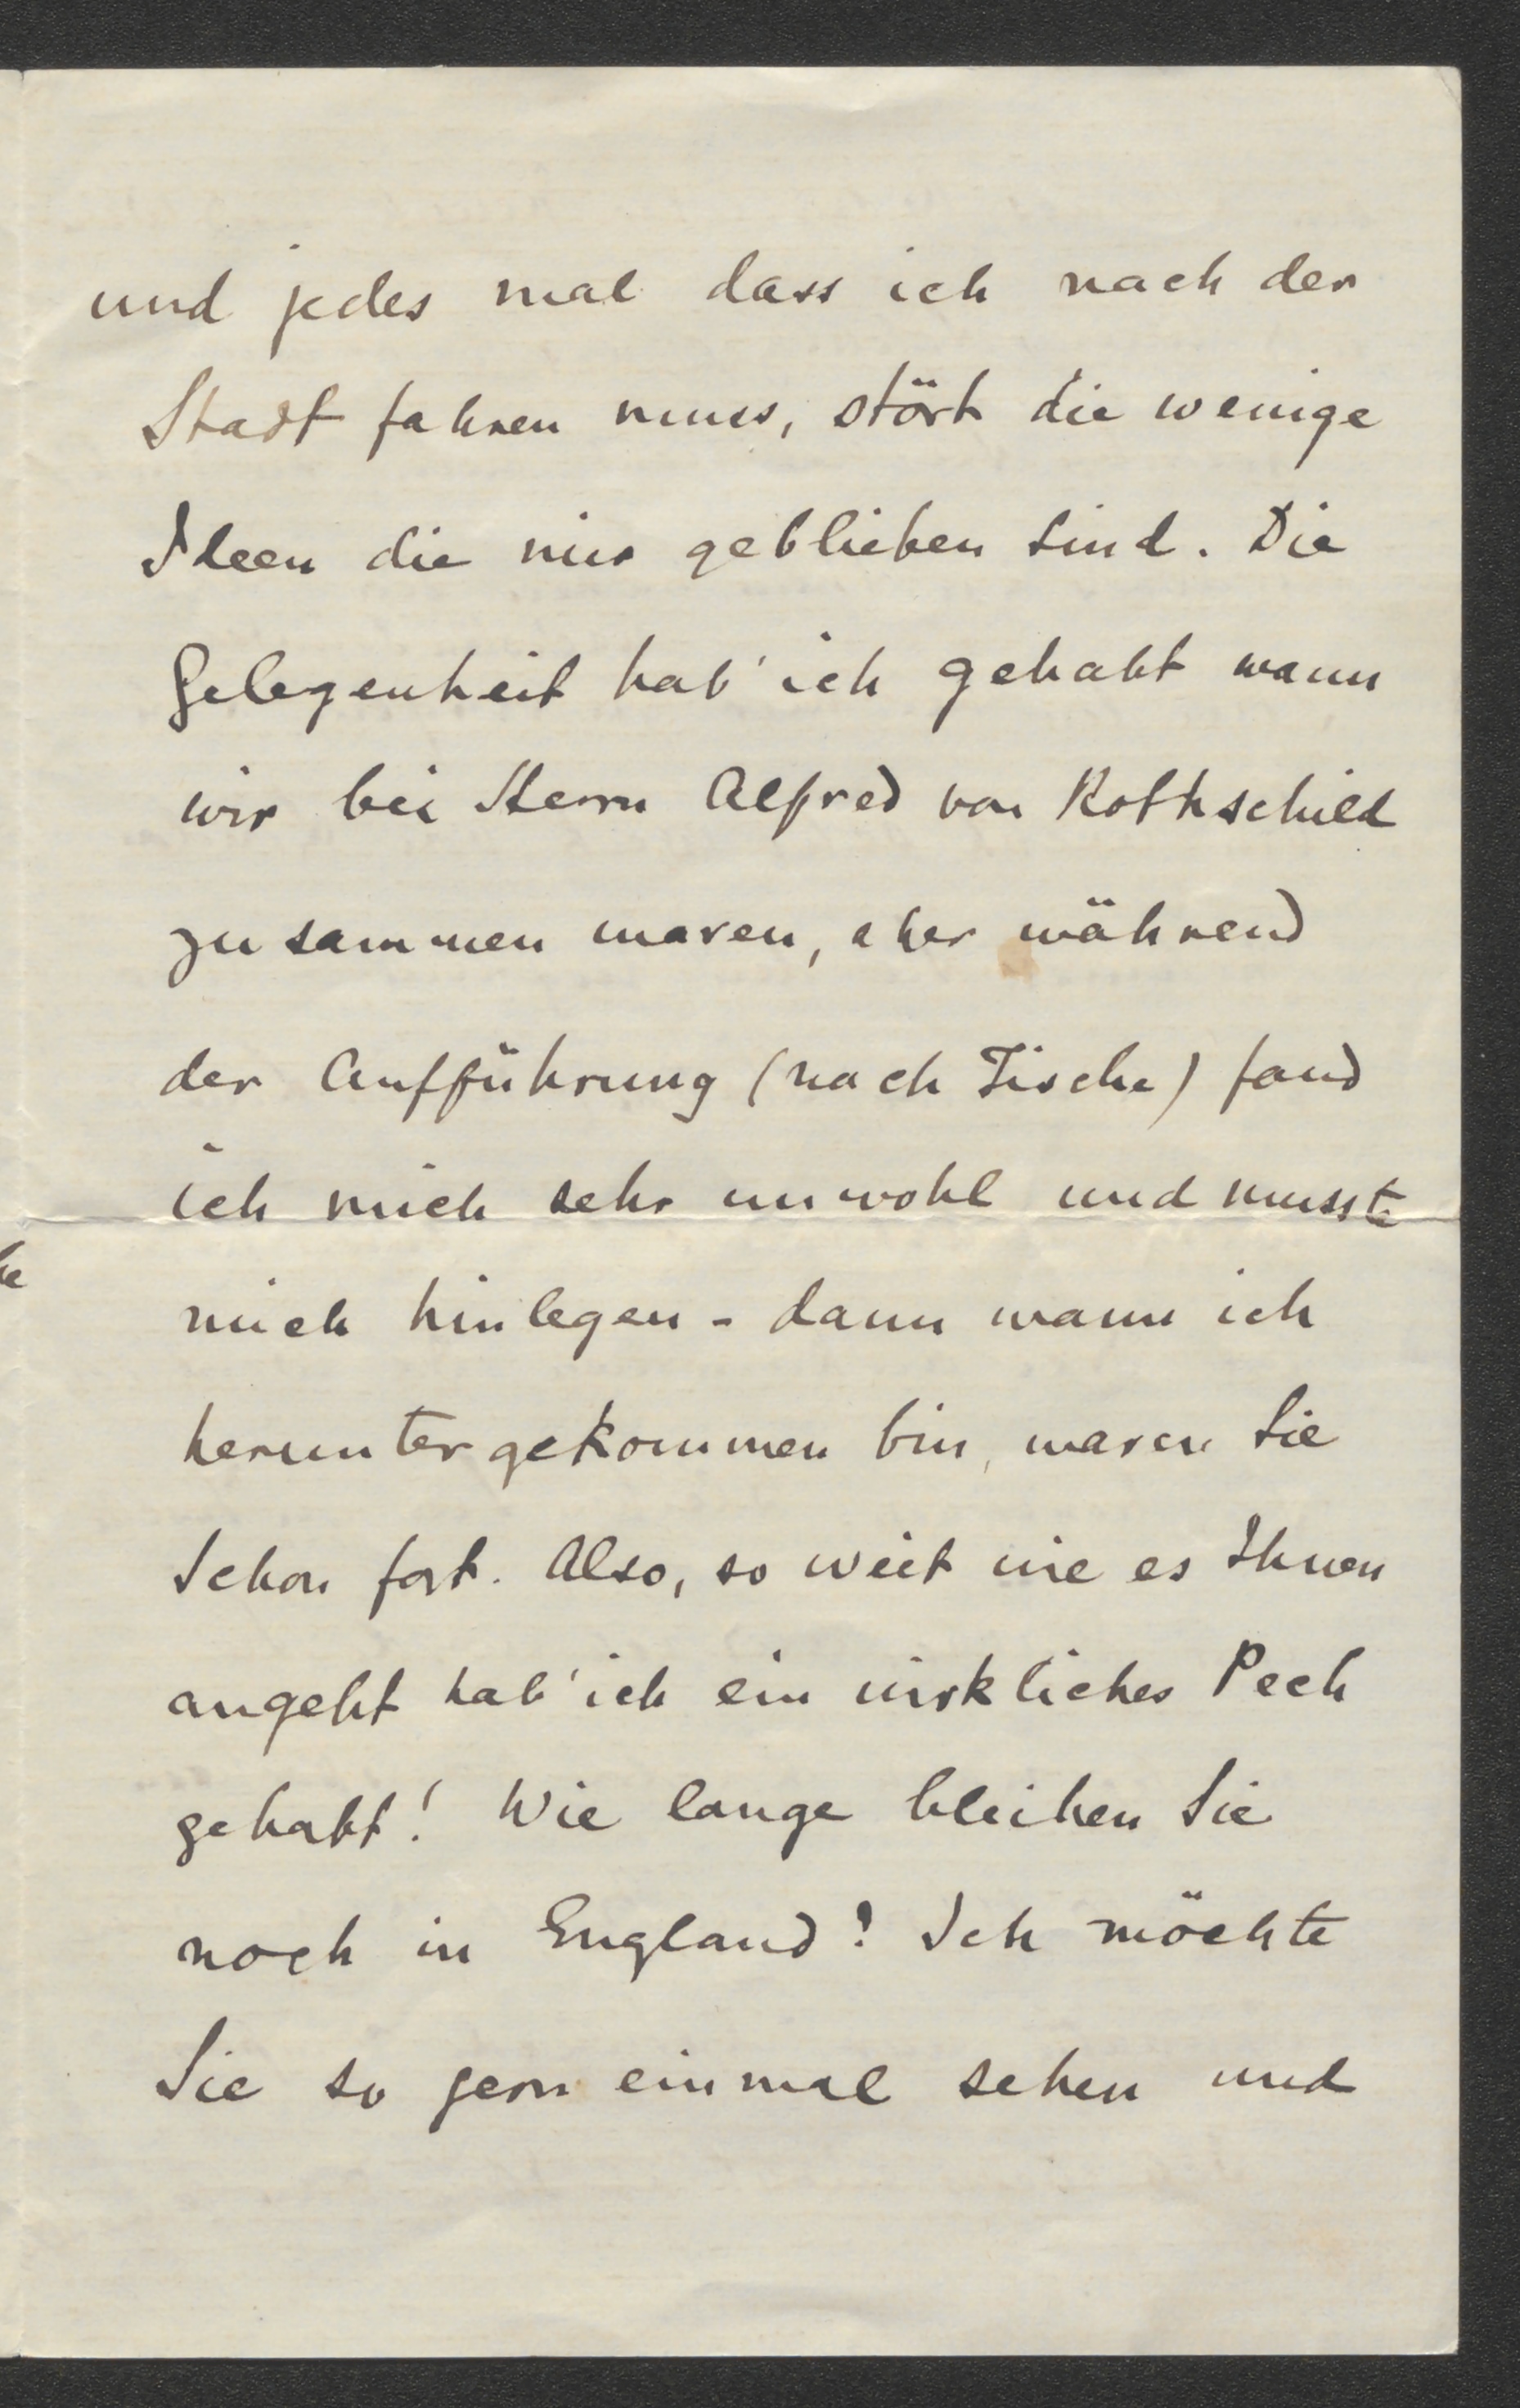 und jedes mal dass ich nach der
Stadt fahren muss, stört die wenige
Ideen die mir geblieben sind. Die
Gelegenheit hab' ich gehabt wann
wir bei Herrn Alfred von Rothschild
zusammen waren, aber während
der Aufführung (nach Tische) fand
ich mich sehr unwohl und musste
mich hinlegen - dann wann ich
heruntergekommen bin, waren Sie
schon fort. Also, so weit wie es Ihnen
angeht hab' ich ein wirkliches Pech
gehabt! Wie lange bleiben Sie
noch in England? Ich möchte
Sie so gern einmal sehen und